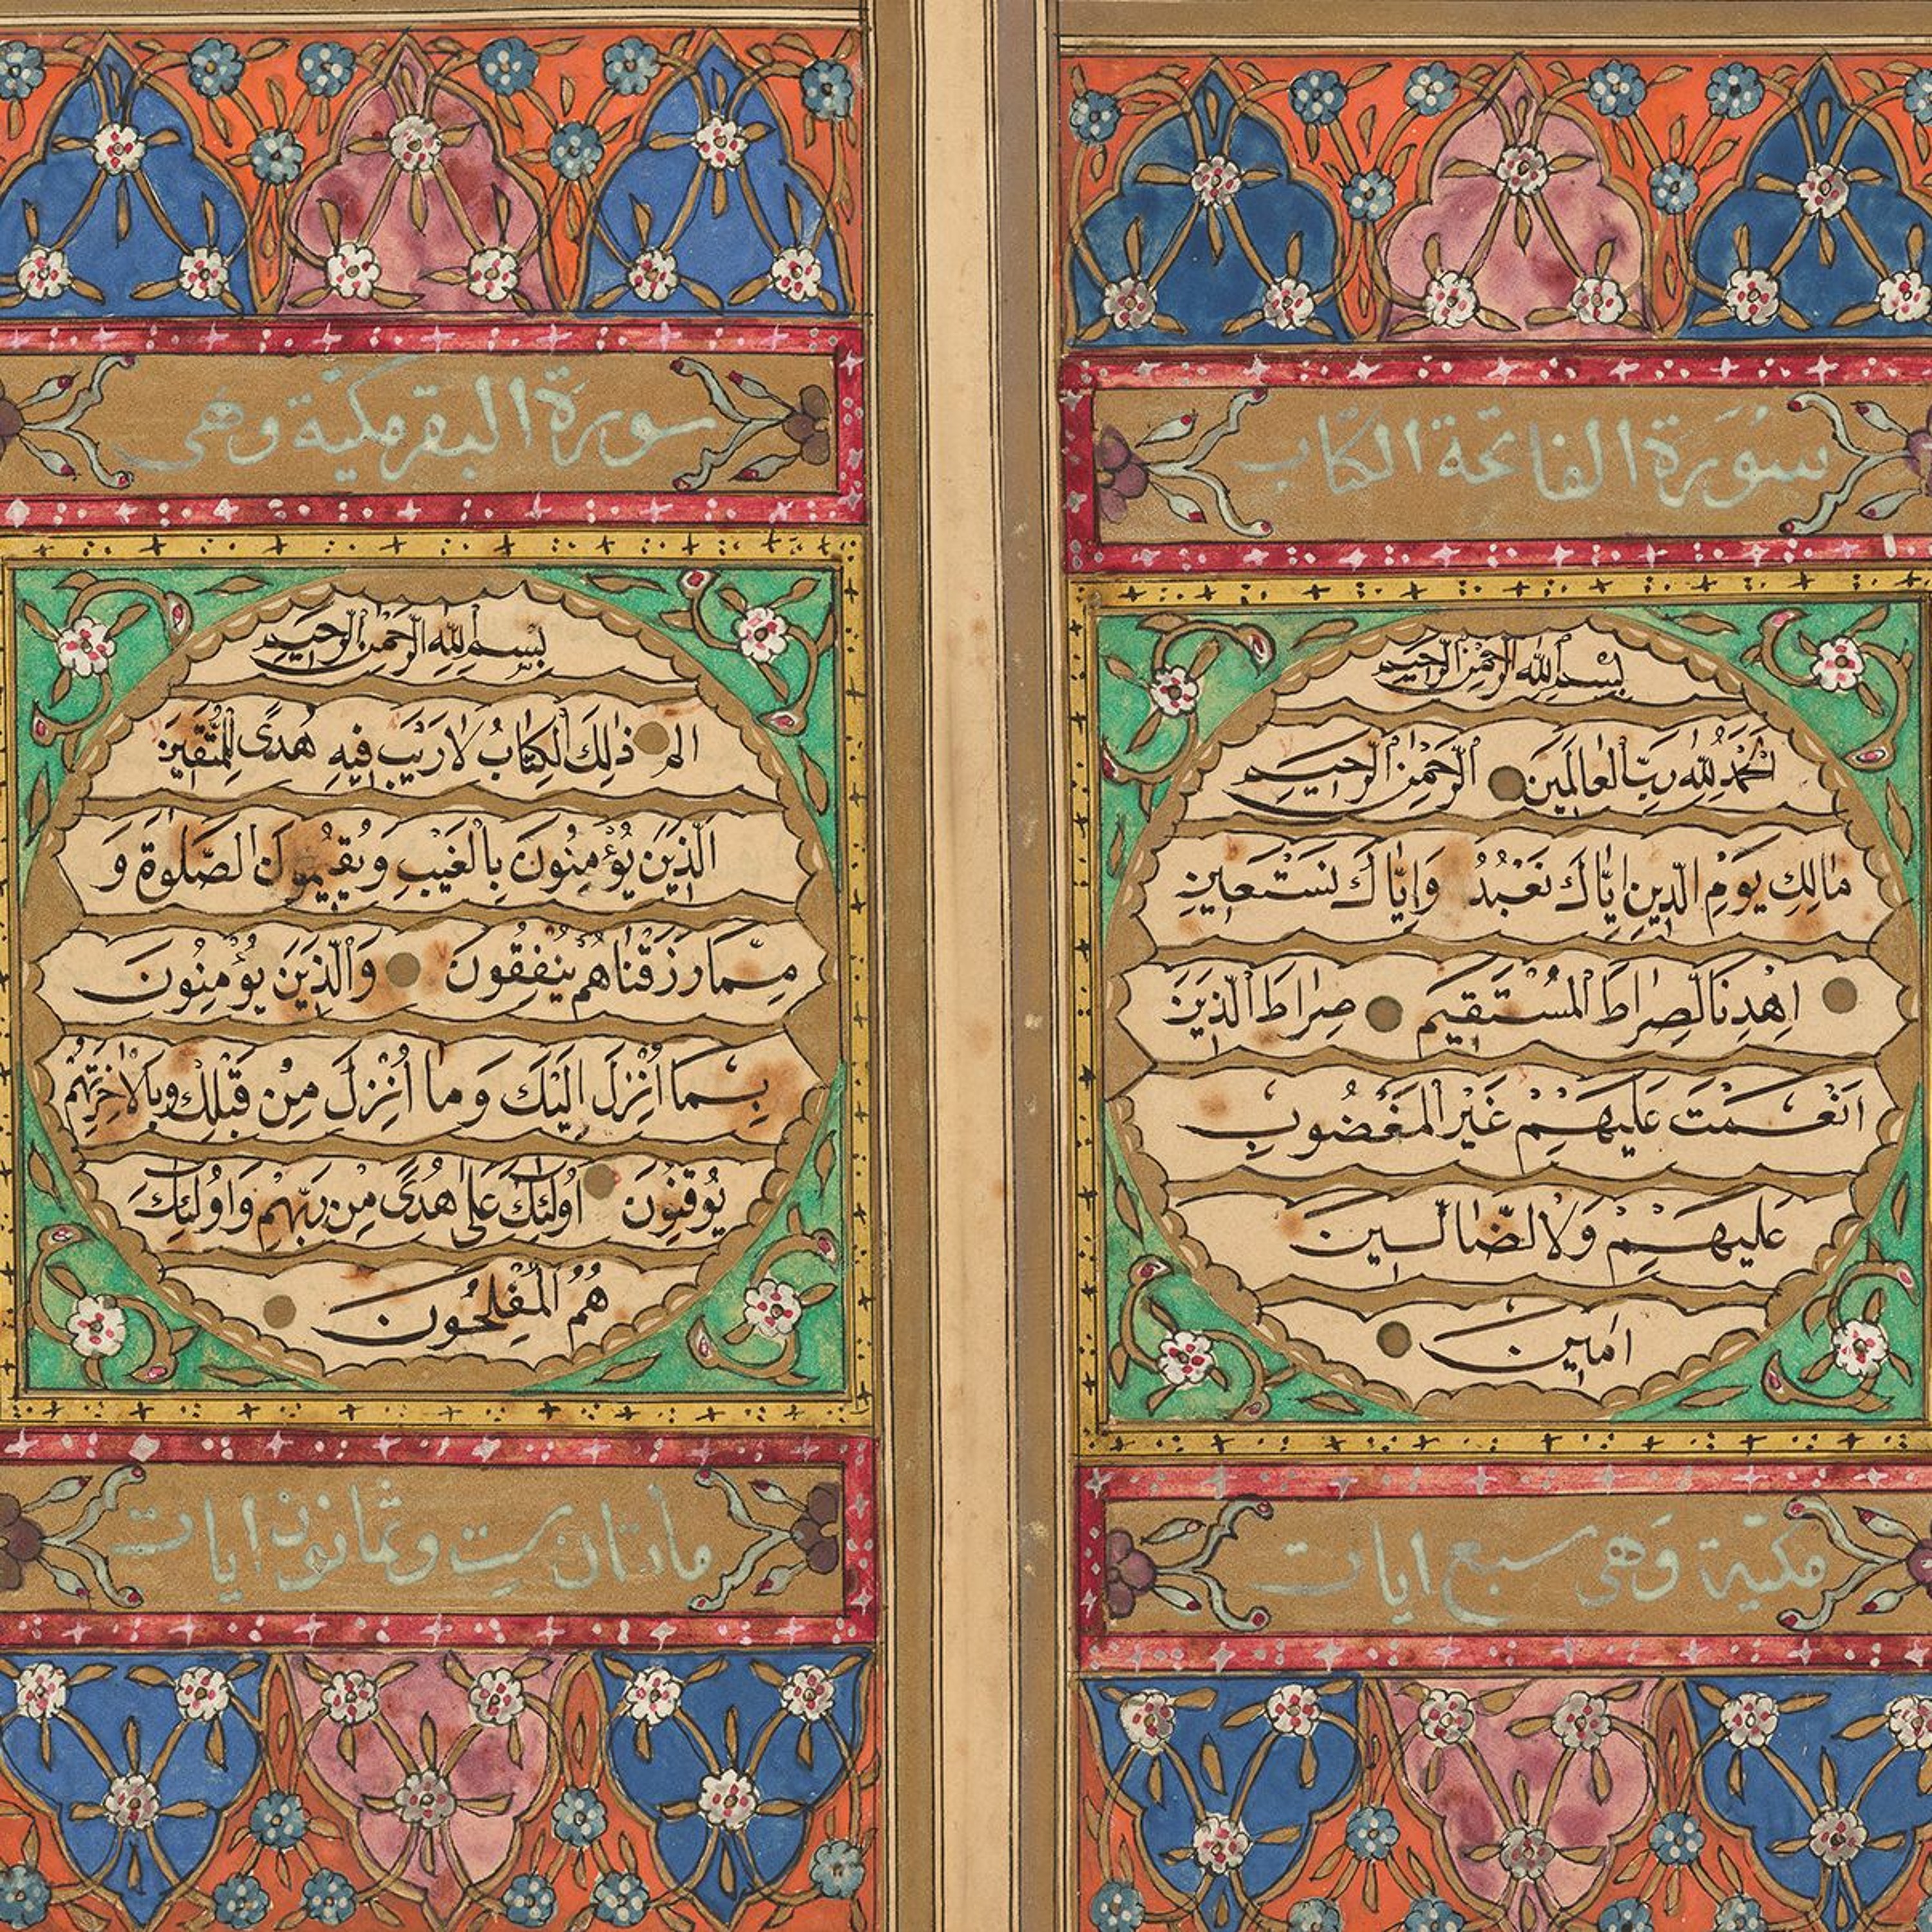 سُورَة الفاتحة الكتاب
بِسْمِ اللهِ الرَّحْمٰنِ الرَّحِيمِ
اَلْحَمْدُ لِلّٰهِ رَبِّ الْعَالَمِينَ الرَّحْمٰنِ الرَّحِيمِ
مَالِكِ يَوْمِ الدِّينِ اِيَّاكَ نَعْبُدُ وَاِيَّاكَ نَسْتَعِينُ
اِهْدِنَا الصِّرَاطَ الْمُسْتَقِيمَ صِرَاطَ الَّذِينَ
اَنْعَمْتَ عَلَيْهِمْ غَيْرِ الْمَغْضُوبِ
عَلَيْهِمْ وَلَا الضَّالِّينَ
اٰمِينَ
مكية وَهى سبع ايات
سورة البقر مكية وهى
بِسْمِ اللهِ الرَّحْمٰنِ الرَّحِيمِ
الم ذٰلِكَ الْكِتَابُ لَا رَيْبَ فِيهِ هُدًى لِلْمُتَّقِينَ
اَلَّذِينَ يُؤْمِنُونَ بِالْغَيْبِ وَيُقِيمُونَ الصَّلٰوةَ وَ
مِمَّا رَزَقْنَاهُمْ يُنْفِقُونَ وَالَّذِينَ يُؤْمِنُونَ
بِمَا اُنْزِلَ اِلَيْكَ وَمَا اُنْزِلَ مِنْ قَبْلِكَ وَبِالْاٰخِرَةِ هُمْ
يُوقِنُونَ اُولٰئِكَ عَلٰى هُدًى مِنْ رَبِّهِمْ وَاُولٰئِكَ
هُمُ الْمُفْلِحُونَ
مأتان ست وثمانون ايات